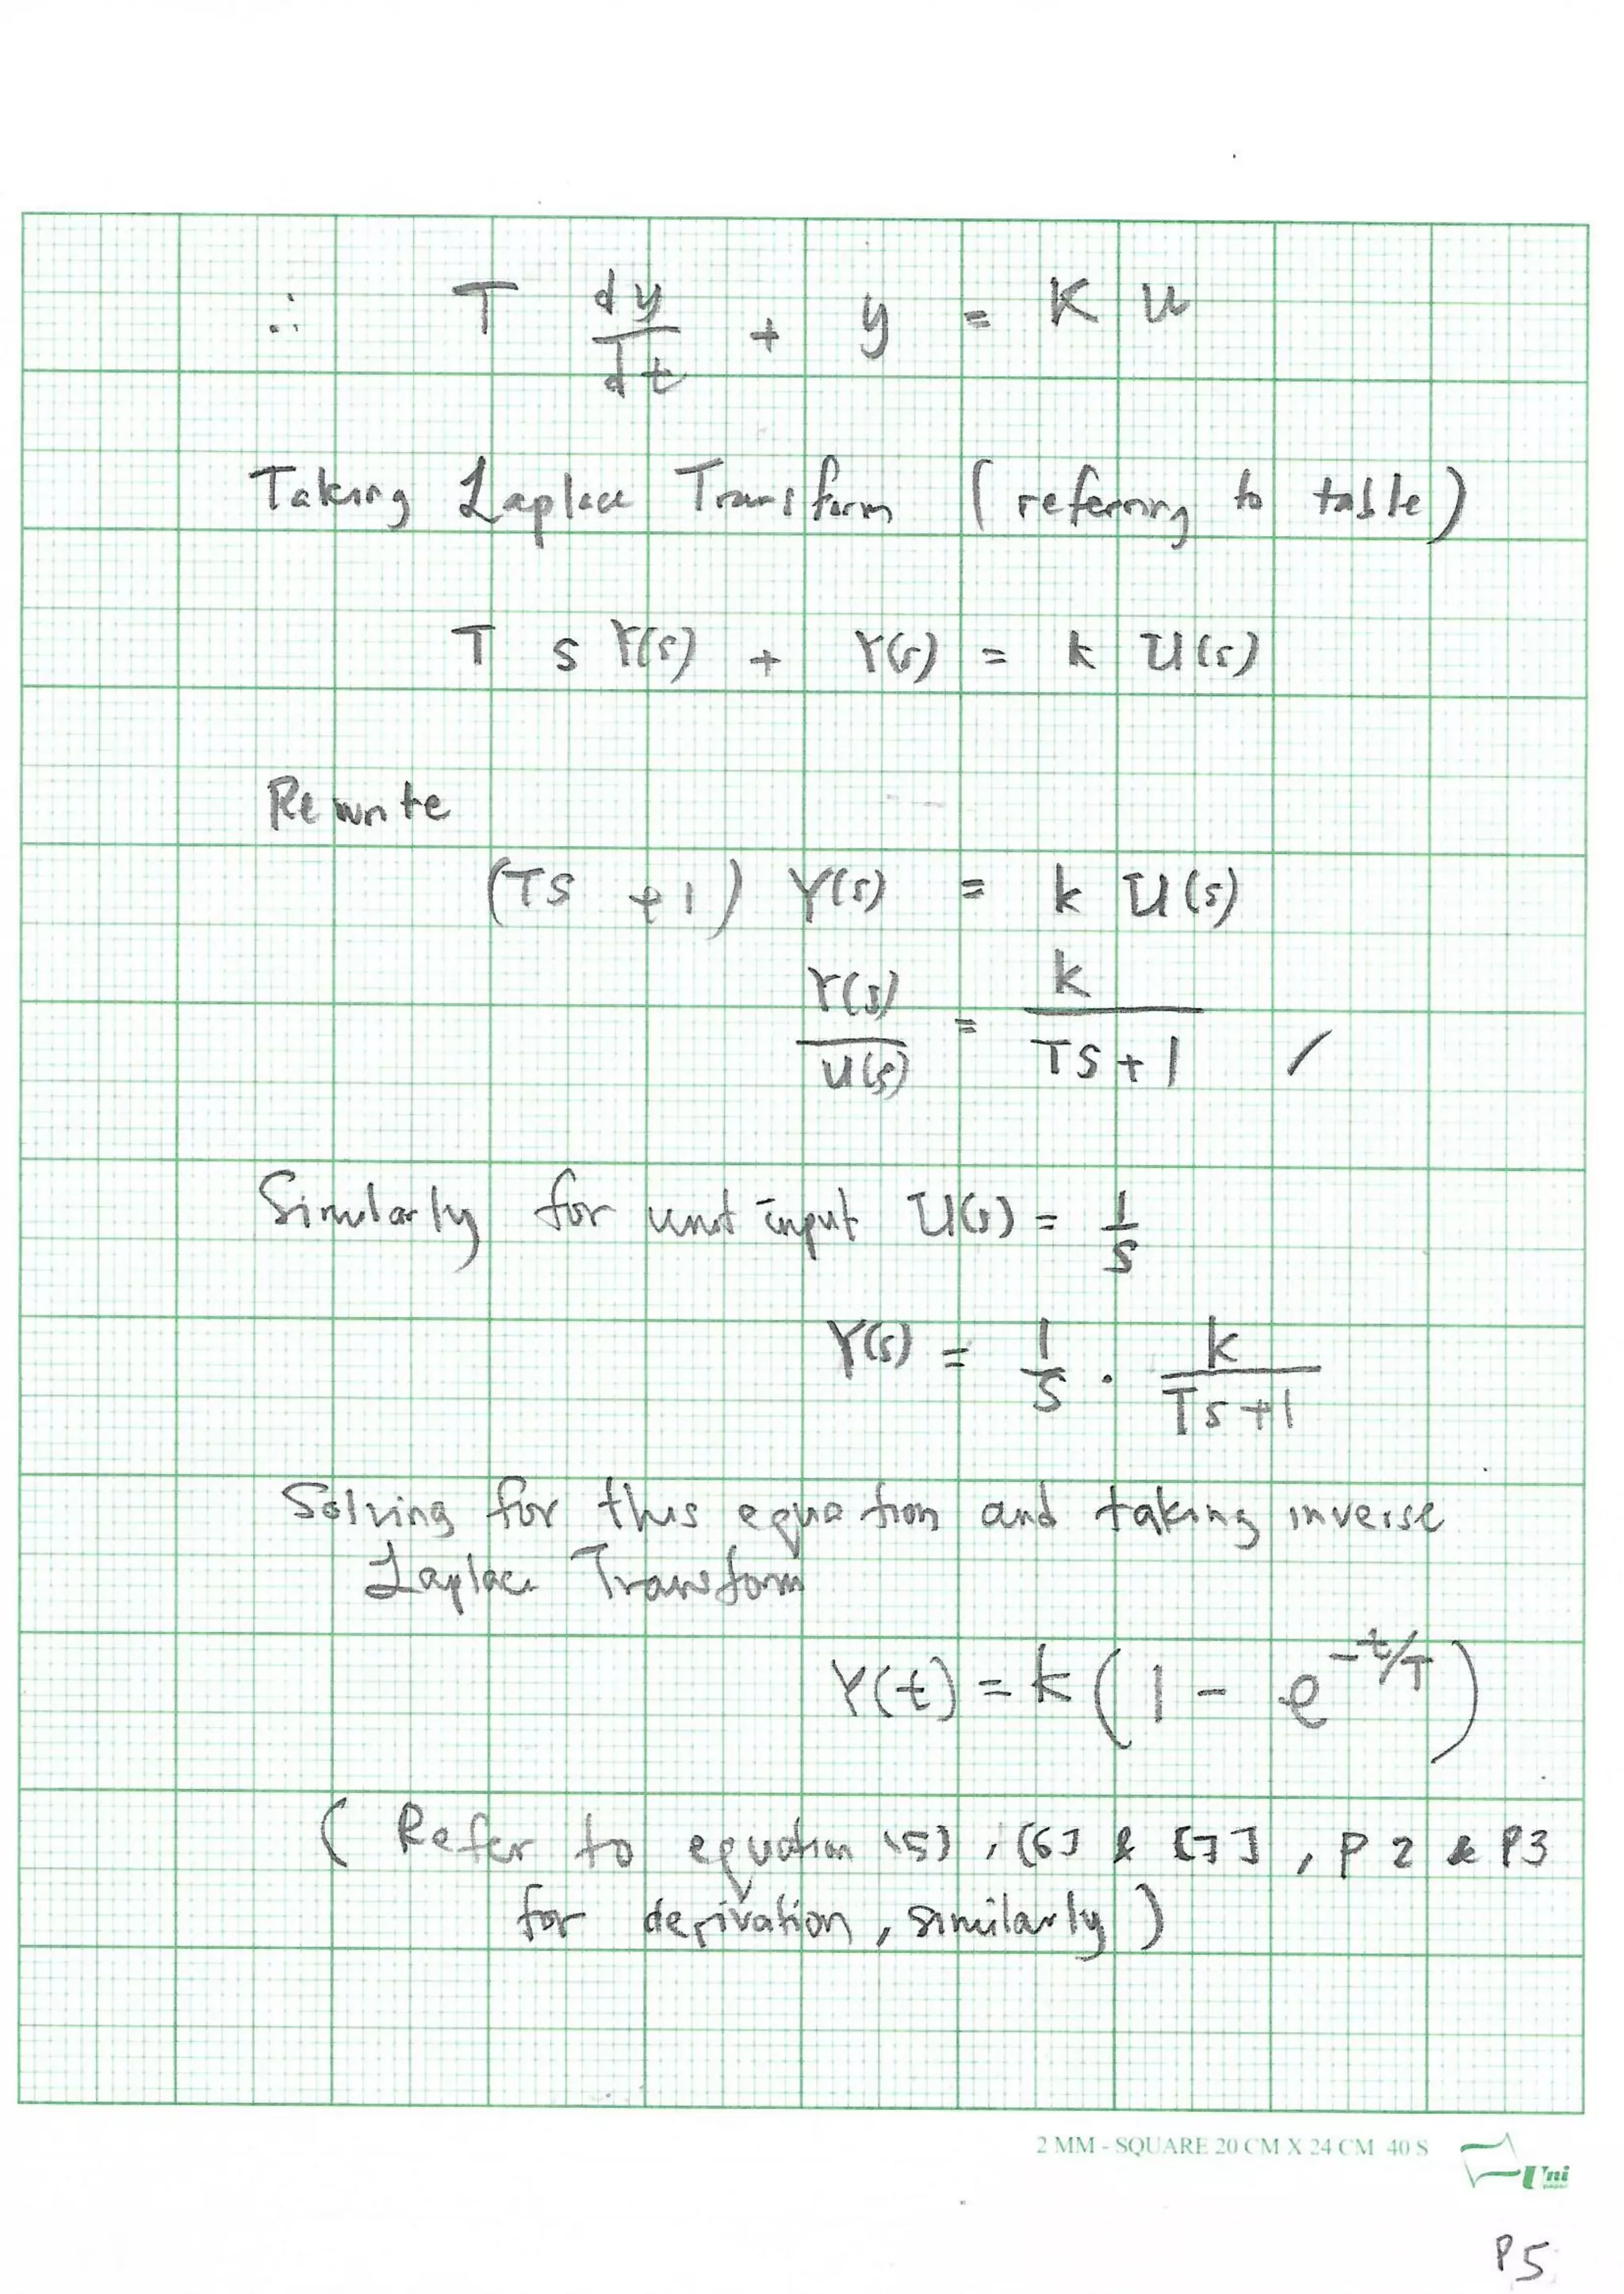 ∴ T dy/dt + y = K u
Taking Laplace Transform (referring to table)
T s Y(s) + Y(s) = k U(s)
Rewrite
(TS + 1) Y(s) = k U(s)
Y(s)/U(s) = k/(TS + 1)
Similarly for unit input U(s) = 1/s
Y(s) = 1/s · k/(Ts + 1)
Solving for this equation and taking inverse
Laplace Transform
Y(t) = k (1 - e^{-t/T})
( Refer to equation (5), [6] & [7], P 2 & P3
for derivation, similarly )
2 MM - SQUARE 20 CM X 24 CM 40 S
Uni
P5